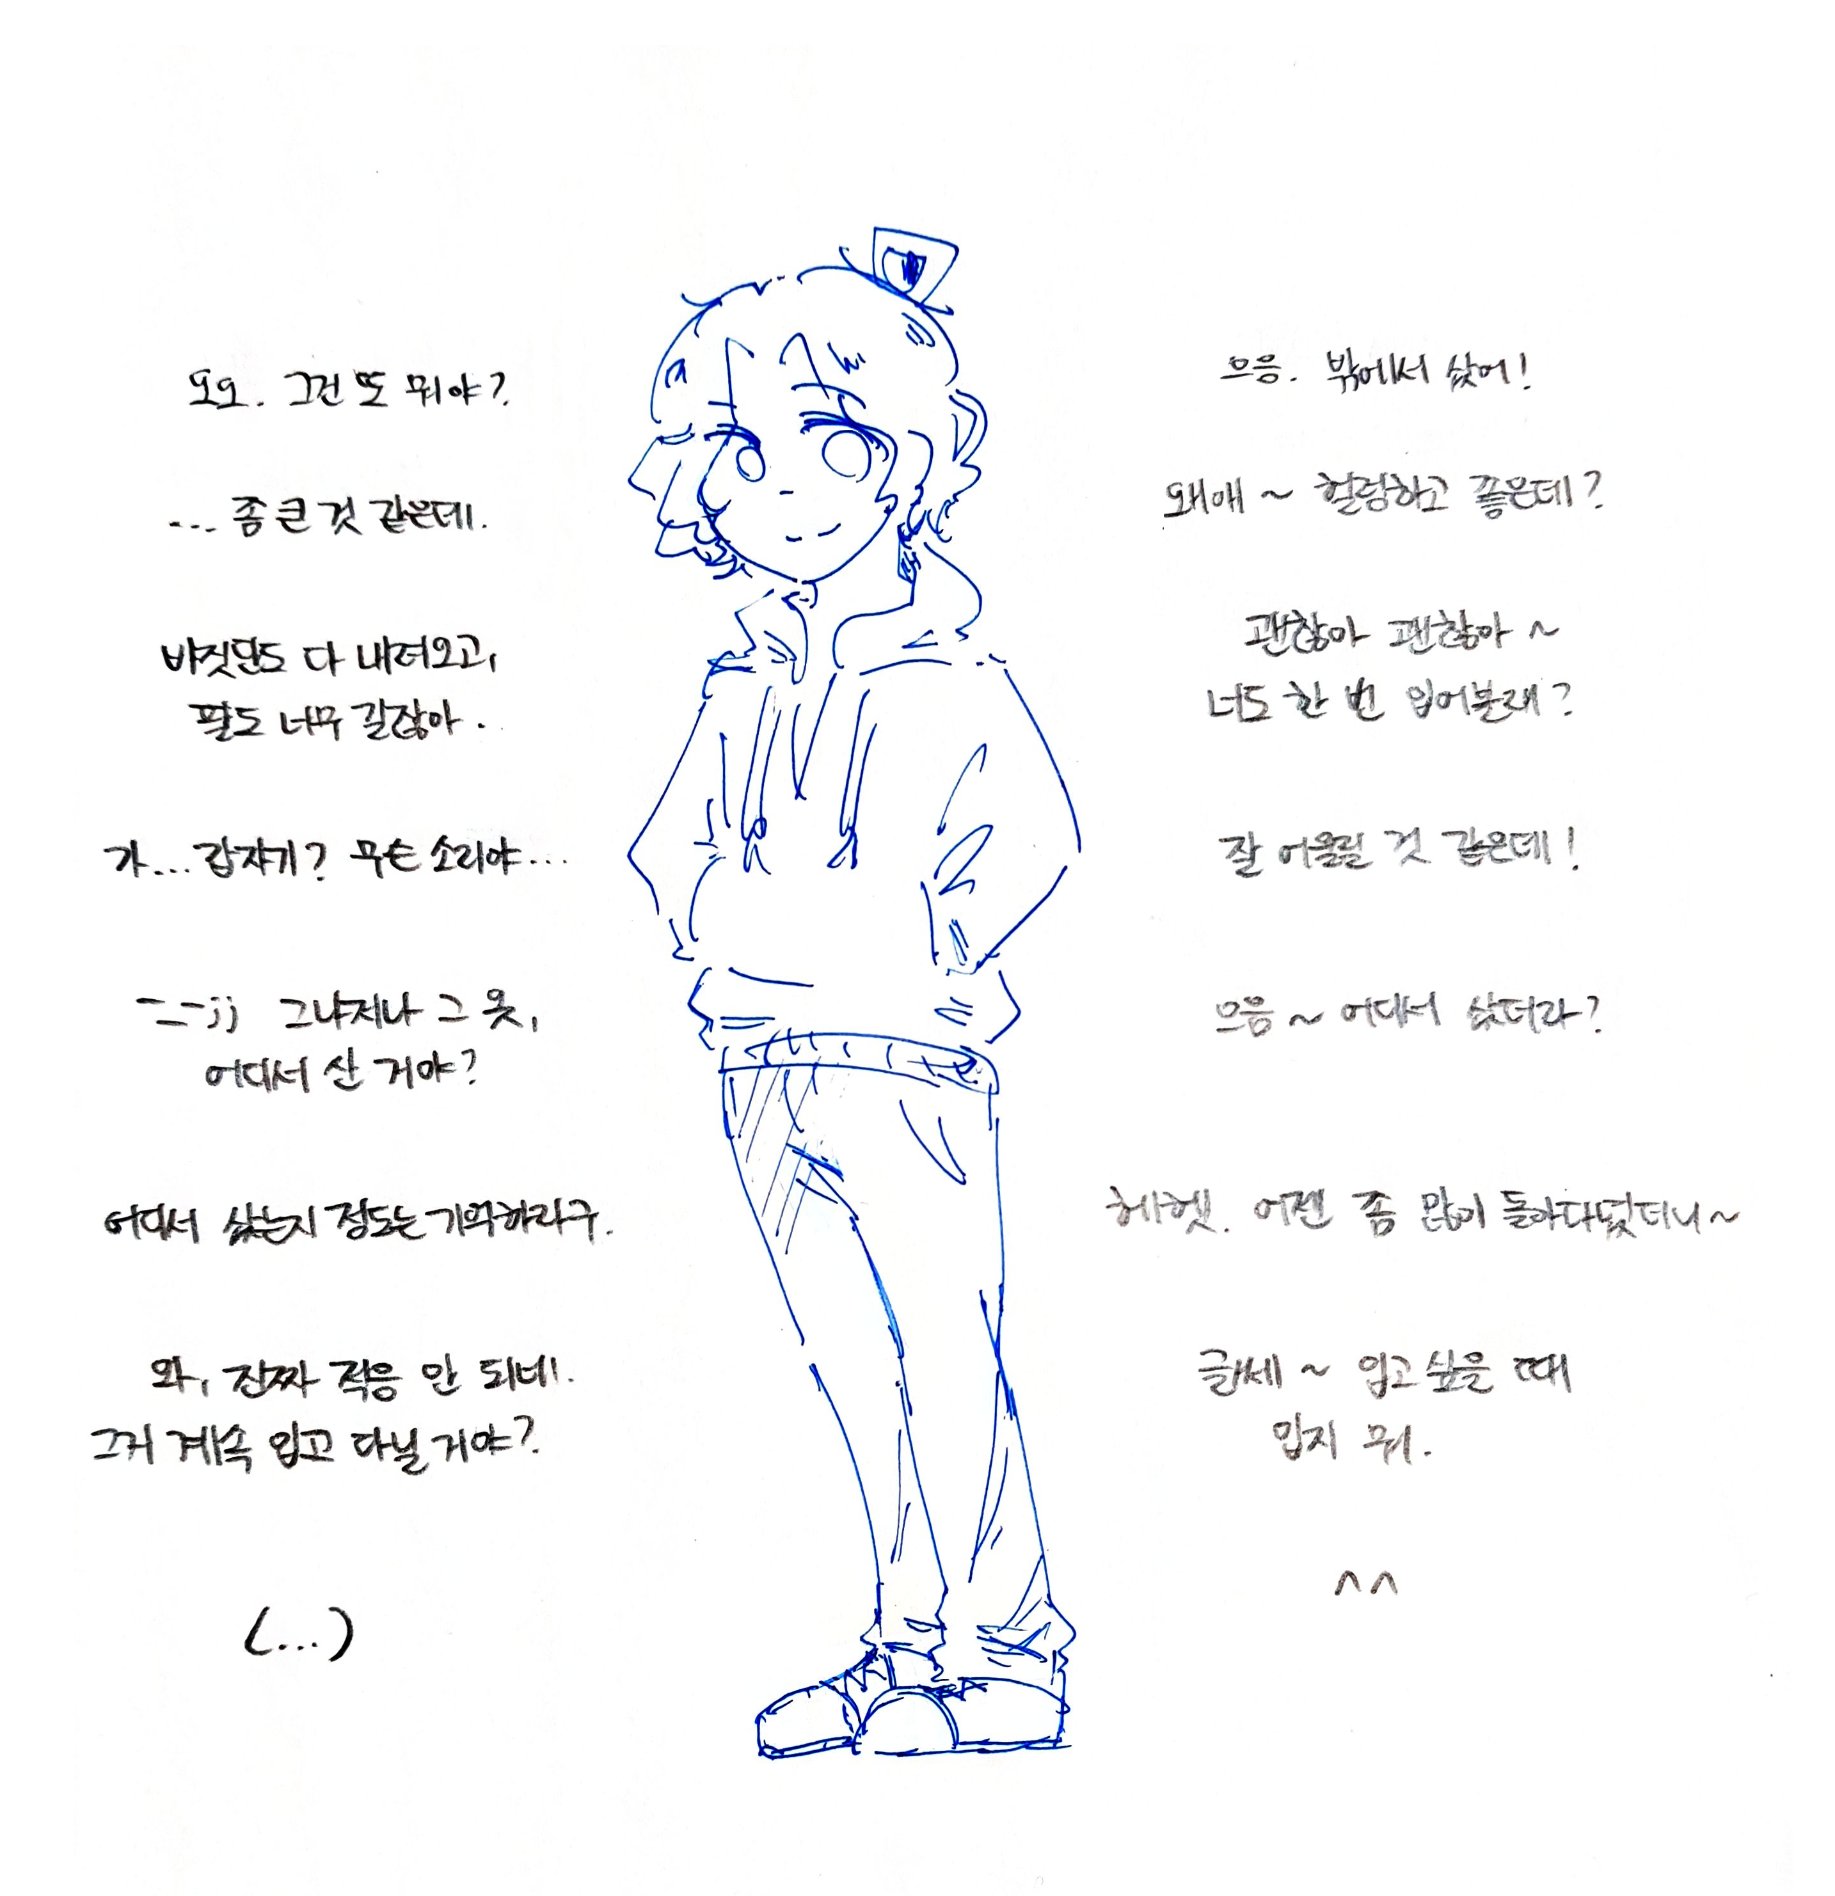 오오. 그건 또 뭐야?
으응. 밖에서 샀어!
... 좀 큰 것 같은데.
왜애 ~ 헐렁하고 좋은데?
바짓단도 다 내려오고,
팔도 너무 길잖아.
괜찮아 괜찮아 ~
너도 한 번 입어볼래?
가... 갑자기? 무슨 소리야...
잘 어울릴 것 같은데!
ㅡㅡ;; 그나저나 그 옷,
어디서 산 거야?
으음 ~ 어디서 샀더라?
어디서 샀는지 정도는 기억하라구.
헤헷. 어젠 좀 많이 돌아다녔더니 ~
와, 진짜 적응 안 되네.
그거 계속 입고 다닐 거야?
글쎄 ~ 입고 싶을 때
입지 뭐.
(...)
^^